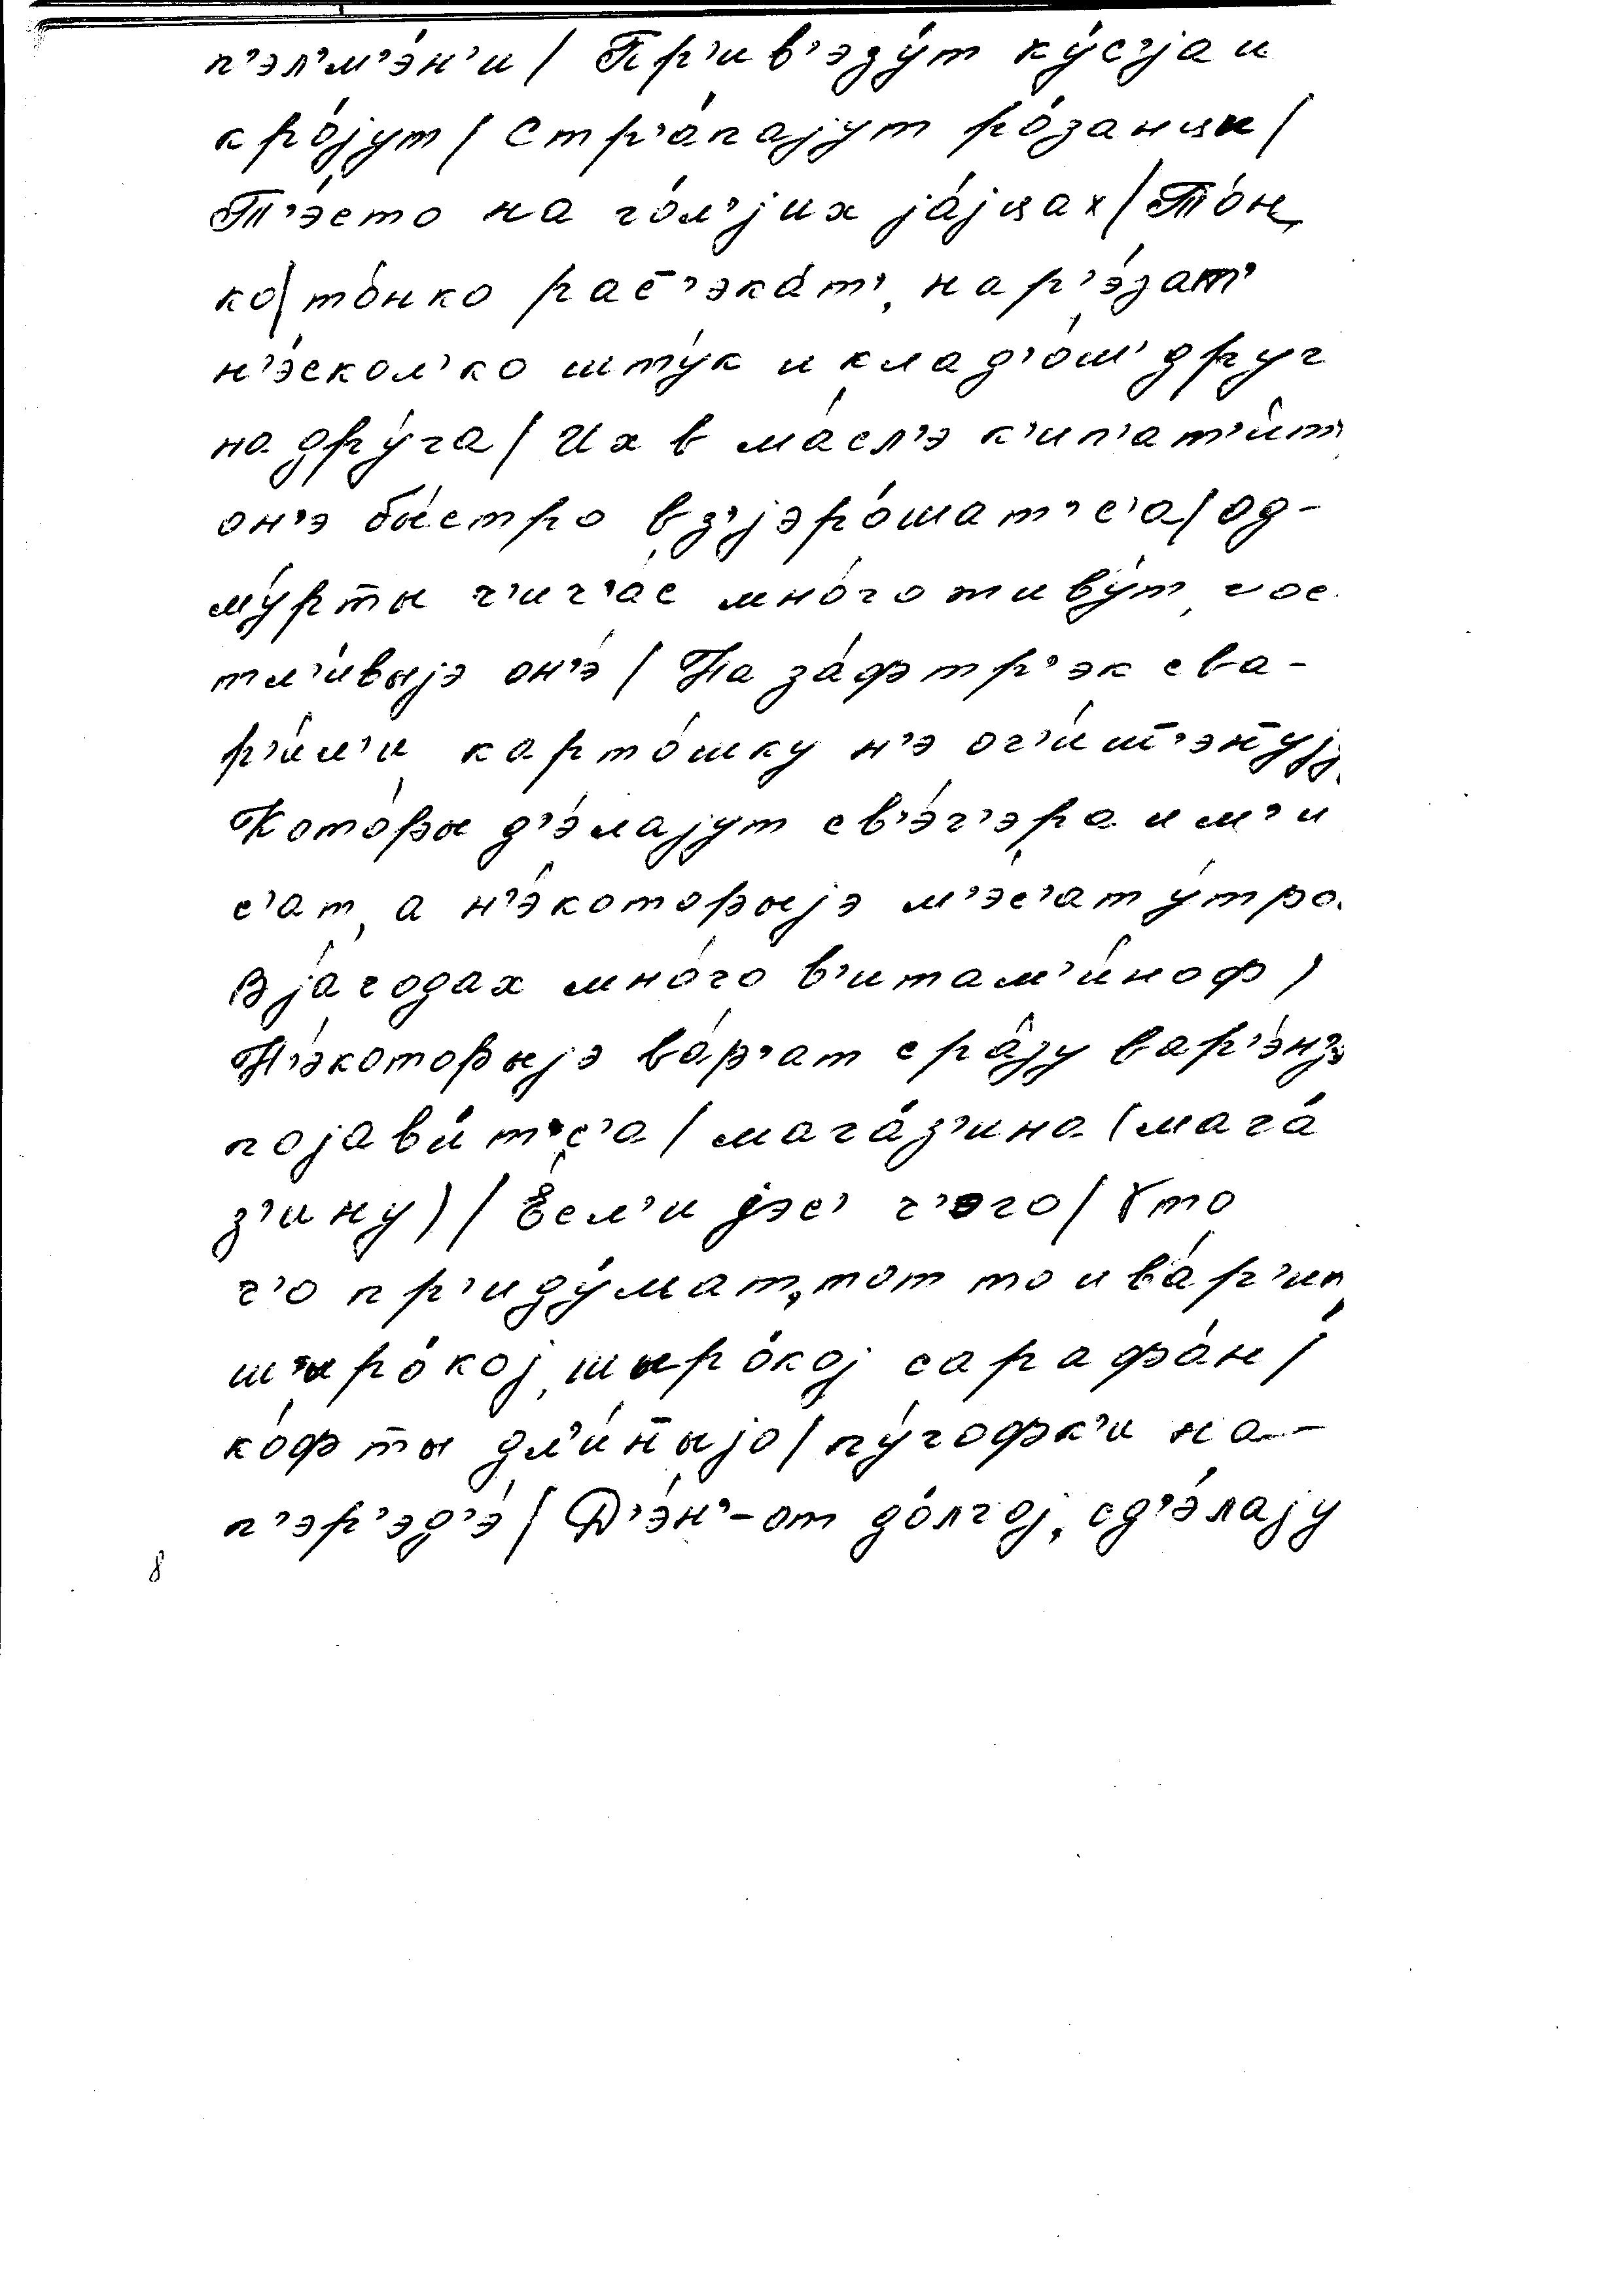 п'эл'м'э́н'и / Пр'ив'эзу́т ку́с'jа и
кро́jут / Стр'а́паjут ро́занцы /
Т'э́сто на го́л'jих jа́jцах / То́н
ко / то́нко рас̄'эка́т', нар'э́зат'
н'э́скол'ко шту́к и клад'о́ш' друг
на дру́га / Их в ма́сл'э к'ип'ат'и́т'
он'э бы́стро вз'jэро́шат'с'а / од-
му́рты ч'ич'а́с мно́го живу́т, гос
тл'и́выjэ он'э́ / На за́фтр'эк сва-
р'и́л'и карто́шку н'э оч'и́ш̄'эн̄уjу
Кото́ры д'э́лаjут св'э́ч'эра и м'и
с'ат, а н'э́которыjэ м'э́с'ат у́тро.
В jа́годах мно́го в'итам'и́ноф /
Н'э́которыjэ ва́р'ат сра́зу вар'э́н'jэ
поjави́т'с'а / мага́з'ина (мага́
з'ину) / Е́сл'и jэс' ч'ого / Кто
ч'о пр'иду́мат, тот то и ва́р'ит
шыро́коj, шыро́коj сарафа́н /
ко́фты дл'и́н̄ыjо / пу́гофк'и на-
п'эр'эд'э́ / Д'э́н'-от до́лгоj, сд'э́лаjу
8